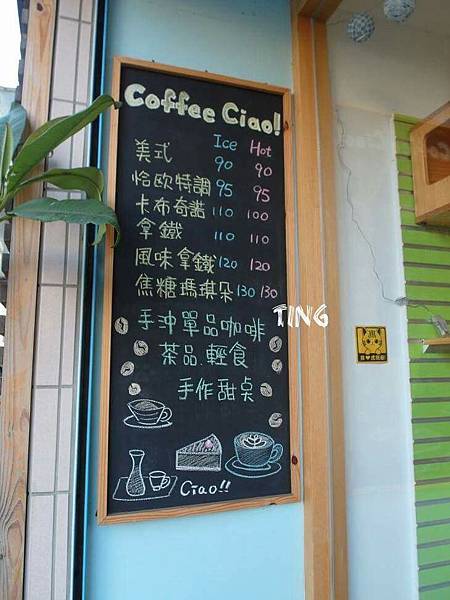 Coffee Ciao!
Ice Hot
美式 90 90
恰歐特調 95 95
卡布奇諾 110 100
拿鐵 110 110
風味拿鐵 120 120
焦糖瑪琪朵 130 130
手沖單品咖啡
茶品.輕食
手作甜桌
Ciao!!
TING